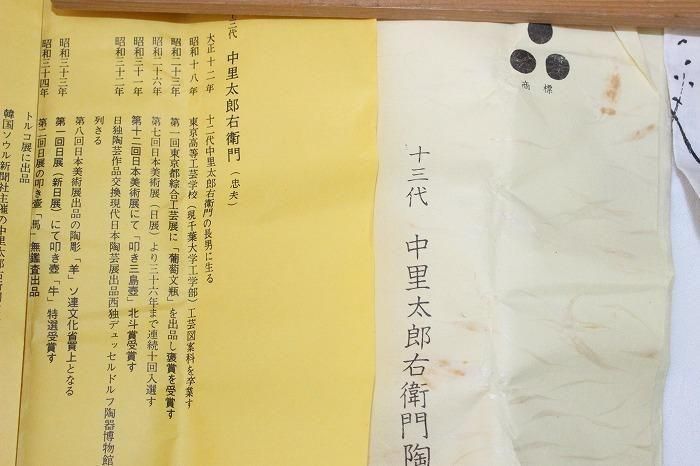 商標
十三代 中里太郎右衛門陶
十三代 中里太郎右衛門(忠夫)
大正十二年 十二代中里太郎右衛門の長男に生る
昭和十八年 東京高等工芸学校(現千葉大学工学部)工芸図案科を卒業す
昭和二十三年 第一回東京都綜合工芸展に「葡萄文瓶」を出品し褒賞を受賞す
昭和二十六年 第七回日本美術展(日展)より三十六年まで連続十回入選す
昭和三十一年 第十二回日本美術展にて「叩き三島壺」北斗賞受賞す
昭和三十二年 日独陶芸作品交換現代日本陶芸展出品西独デュッセルドルフ陶器博物館
列さる
昭和三十三年 第八回日本美術展出品の陶彫「羊」ソ連文化省買上となる
第一回日展(新日展)にて叩き壺「牛」特選受賞す
昭和三十四年 第二回日展の叩き壺「馬」無鑑査出品
トルコ展に出品
韓国ソウル新聞社主催の中里太郎右衛門